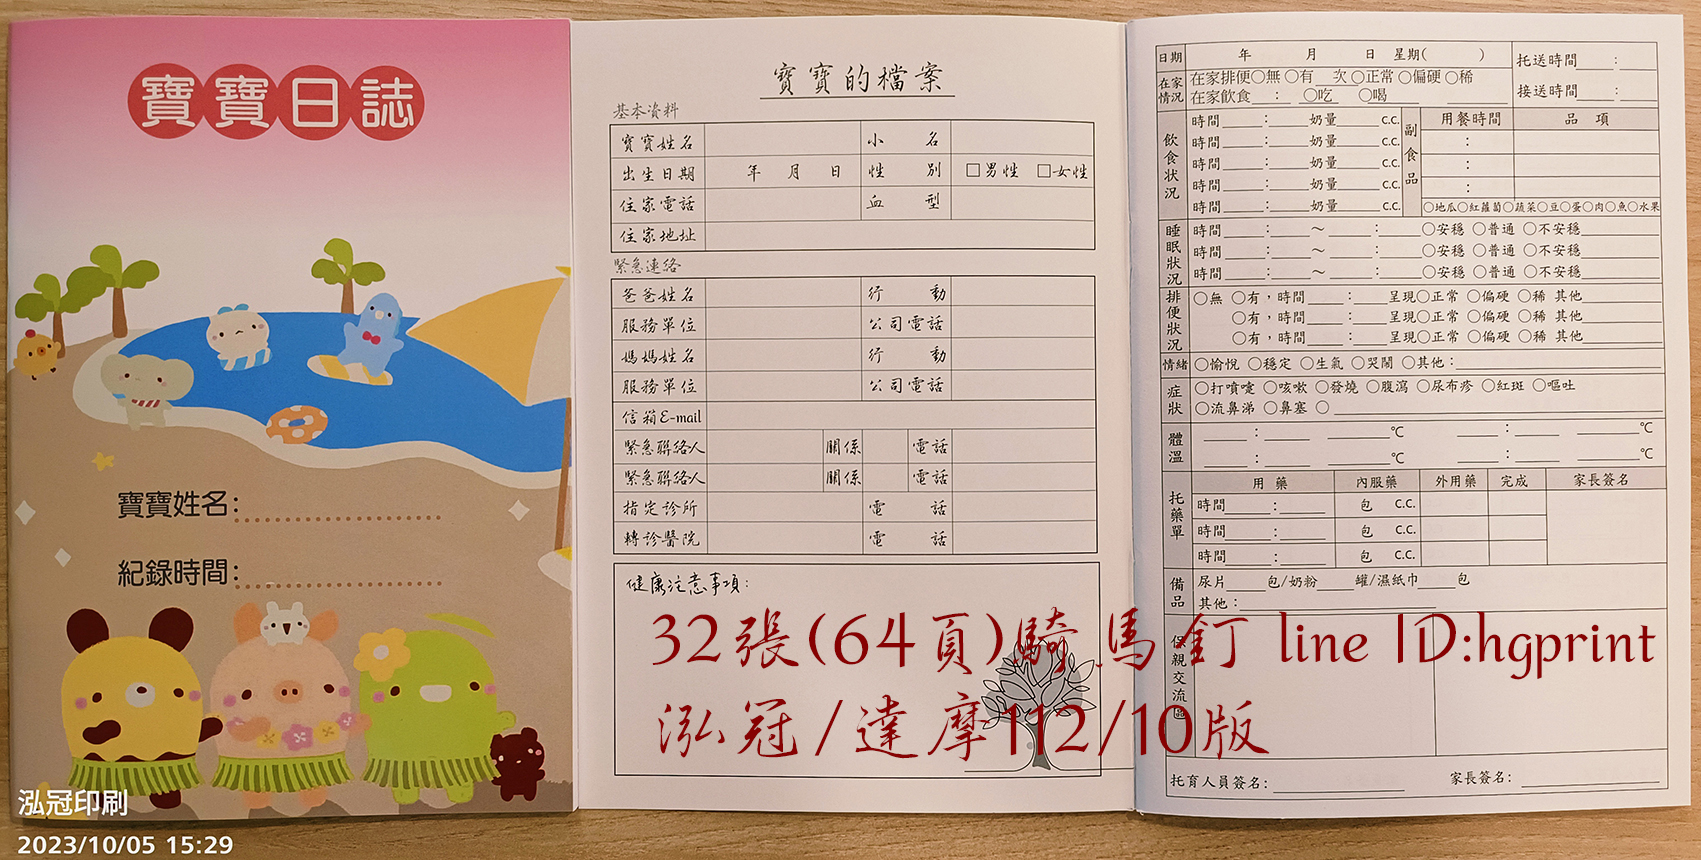 寶寶日誌
寶寶姓名:
紀錄時間:
泓冠印刷
2023/10/05 15:29
寶寶的檔案
基本資料
寶寶姓名 小名
出生日期 年 月 日 性別 □男性 □女性
住家電話 血型
住家地址
緊急連絡
爸爸姓名 行動
服務單位 公司電話
媽媽姓名 行動
服務單位 公司電話
信箱E-mail
緊急聯絡人 關係 電話
緊急聯絡人 關係 電話
指定診所 電話
轉診醫院 電話
健康注意事項:
32張(64頁)騎馬釘 line ID:hgprint
泓冠/達摩112/10版
日期 年 月 日 星期( ) 托送時間 :
在家情況 在家排便○無 ○有 次 ○正常 ○偏硬 ○稀
在家飲食 : ○吃 ○喝 接送時間 :
飲食狀況 時間 : 奶量 c.c. 副食品 用餐時間 品項
時間 : 奶量 c.c. :
時間 : 奶量 c.c. :
時間 : 奶量 c.c. :
時間 : 奶量 c.c. ○地瓜○紅蘿蔔○蔬菜○豆○蛋○肉○魚○水果
睡眠狀況 時間 : ~ : ○安穩 ○普通 ○不安穩
時間 : ~ : ○安穩 ○普通 ○不安穩
時間 : ~ : ○安穩 ○普通 ○不安穩
排便狀況 ○無 ○有,時間 : 呈現○正常 ○偏硬 ○稀 其他
○有,時間 : 呈現○正常 ○偏硬 ○稀 其他
○有,時間 : 呈現○正常 ○偏硬 ○稀 其他
情緒 ○愉悅 ○穩定 ○生氣 ○哭鬧 ○其他:
症狀 ○打噴嚏 ○咳嗽 ○發燒 ○腹瀉 ○尿布疹 ○紅斑 ○嘔吐
○流鼻涕 ○鼻塞 ○
體溫 : ℃ : ℃
: ℃ : ℃
托藥單 用藥 內服藥 外用藥 完成 家長簽名
時間 : 包 c.c.
時間 : 包 c.c.
時間 : 包 c.c.
備品 尿片 包/奶粉 罐/濕紙巾 包
其他:
保親交流區
托育人員簽名: 家長簽名: